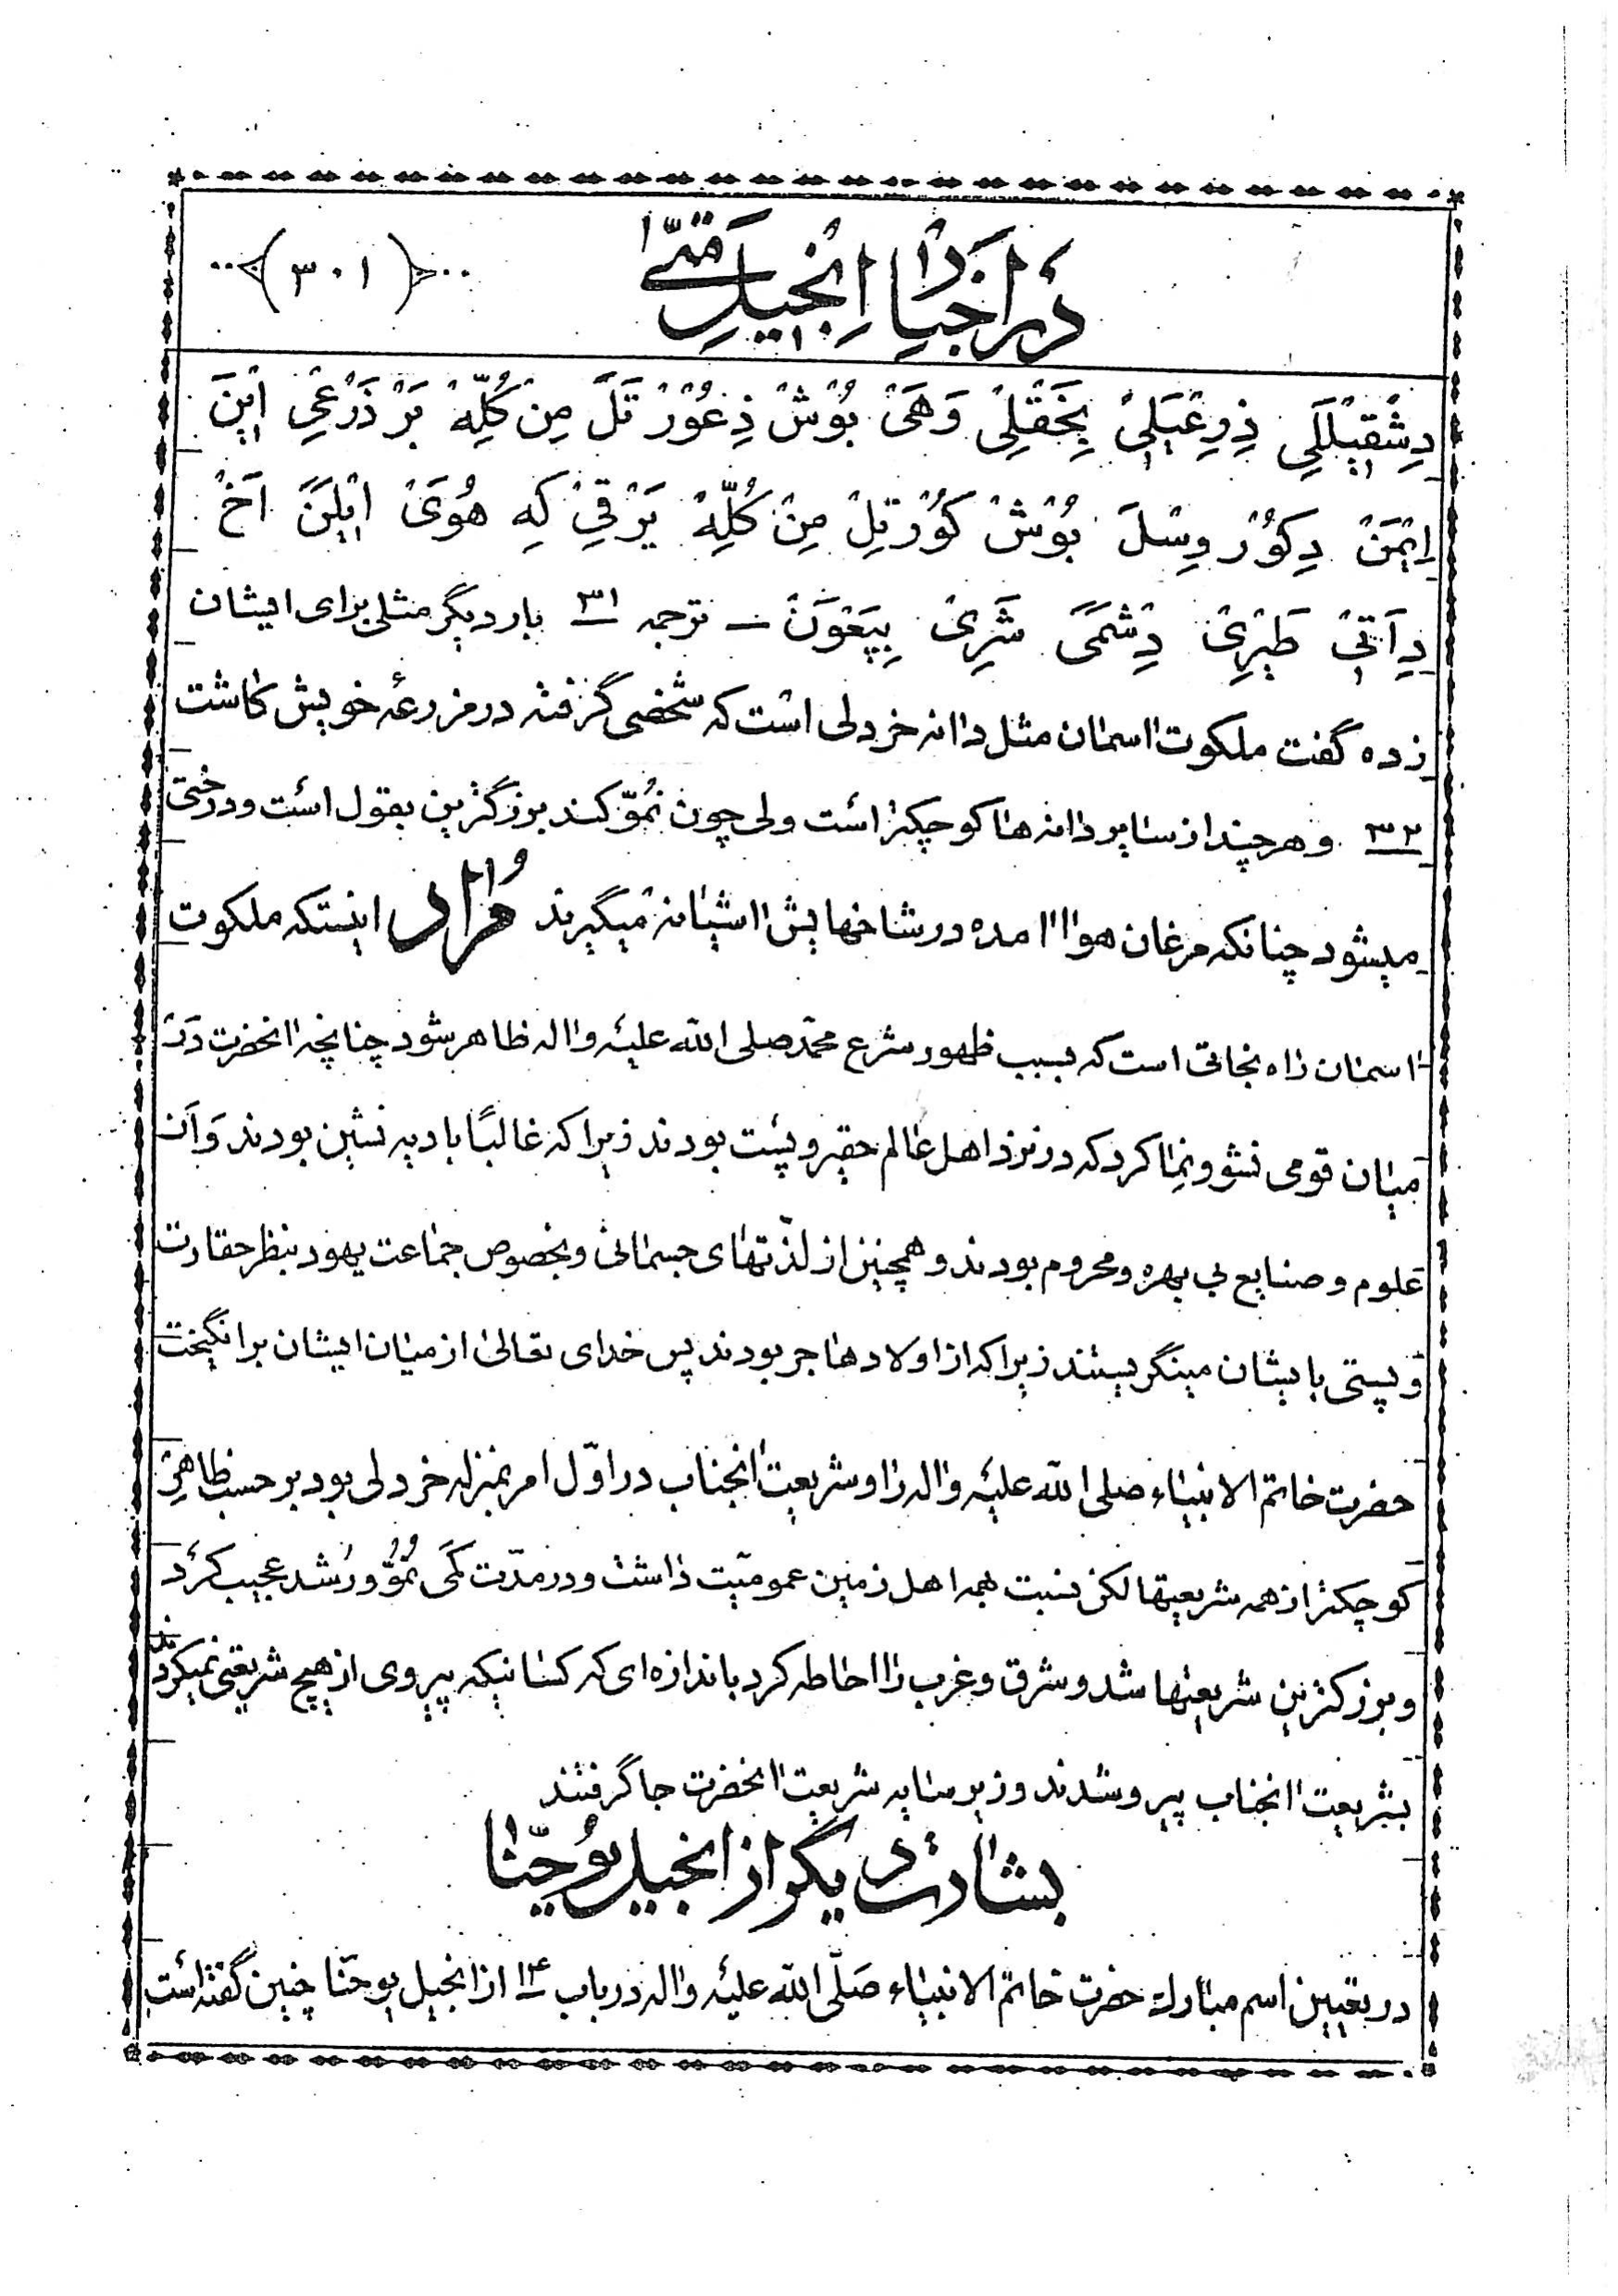 در اخبار انجیل متّی
(۳۰۱)
دِشْقِیْلَلِی ذِرِعْیَلِیْ بِحَقْلِیْ وَهَیْ بُوْشْ ذِعُوْرْ تَلَ مِنْ كُلِّهْ بَرْ ذَرْعِیِ اٖیْنَ
اِیْمَنْ دِكَوُرْ وِسْلَ بُوْشْ كَوُرْتِلْ مِنْ كُلِّهْ یَرْقِیْ كِهِ هُوِیَ اِیْلَنَ اَخْ
دِاَتِیْ طَیْرِیْ دِشْمَیَ شَرِیْ بِپَغْوَنَ – ترجمه ۳۱ بار دیگر مثلی برای ایشان
زده گفت ملکوت اسمان مثل دانه خردلی است که شخصی گرفته در مزرعهٔ خویش کاشت
۳۲ و هرچند از سایر دانه ها کوچکتر است ولی چون نُموّ کند بزرگترین بقول است و درختی
میشود چنانکه مرغان هوا امده در شاخهایش اشیانه میگیرند مُراد اینستکه ملکوت
اسمان راه نجاتی است که بسبب ظهور شرع محمّد صلی الله علیه واله ظاهر شود چنانچه انحضرت در
میان قومی نشو و نما کرد که در نزد اهل عالم حقیر و پست بودند زیرا که غالبًا بادیه نشین بودند وَاَز
علوم و صنایع بی بهره و محروم بودند و همچنین از لذّتهای جسمانی و بخصوص جماعت یهود بنظر حقارت
و پستی بایشان مینگریستند زیرا که از اولاد هاجر بودند پس خدای تعالیٰ از میان ایشان برانگیخت
حضرت خاتم الانبیاء صلی الله علیه واله را و شریعت انجناب در اوّل امر بمنزله خردلی بود بر حسب ظاهر
کوچکتر از همه شریعتها لکن نسبت بهمه اهل زمین عمومیّت داشت و در مدّت کَمی نُموُّ و رُشد عجیب کرد
و بزرکترین شریعتها شد و شرق و غرب را احاطه کرد باندازه ای که کسانیکه پیروی از هیچ شریعتی نمیکردند
بشریعت انجناب پیرو شدند و زیر سایه شریعت انحضرت جا گرفتند
بشارت دیگر از انجیل یُوحنّا
در تعیین اسم مبارك حضرت خاتم الانبیاء صَلّی الله علیه واله در باب ۱۴ از انجیل یوحنّا چنین گفته است